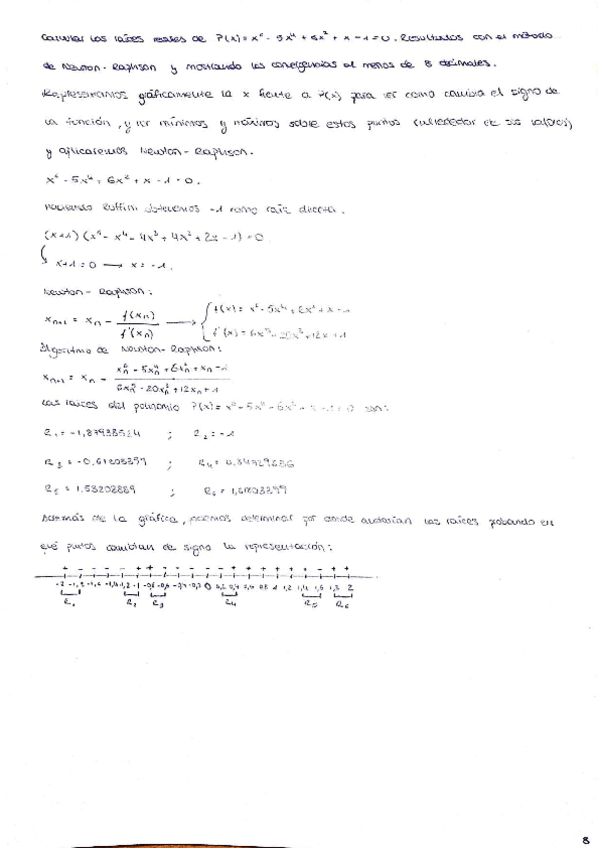 Calcular las raíces reales de P(x) = x⁶ - 5x⁴ + 6x² + x - 1 = 0. Resultados con el método
de Newton-Raphson y mostrando las convergencias al menos de 8 decimales.
Representamos gráficamente la x frente a P(x) para ver como cambia el signo de
la función, y ver mínimos y máximos sobre estos puntos (alrededor de sus valores)
y aplicaremos Newton-Raphson.
x⁶ - 5x⁴ + 6x² + x - 1 = 0.
Haciendo Ruffini obtenemos -1 como raíz directa.
(x+1)(x⁵ - x⁴ - 4x³ + 4x² + 2x - 1) = 0
x+1 = 0 → x = -1.
Newton-Raphson:
xn+1 = xn - f(xn)/f'(xn) → { f(x) = x⁶ - 5x⁴ + 6x² + x - 1
f'(x) = 6x⁵ - 20x³ + 12x + 1
Algoritmo de Newton-Raphson:
xn+1 = xn - (xn⁶ - 5xn⁴ + 6xn² + xn - 1)/(6xn⁵ - 20xn³ + 12xn + 1)
Las raíces del polinomio P(x) = x⁶ - 5x⁴ 6x² = 0 son:
R1 = -1,87938524 ; R2 = -1
R3 = ; R4 = 0.34729636
R5 = 1.53208889 ; R6 = 1,61803399
Además de la gráfica, podemos determinar por donde andarían las raíces probando en
qué puntos cambian de signo la representación:
R1 R2 R3 R4 R5 R6
8